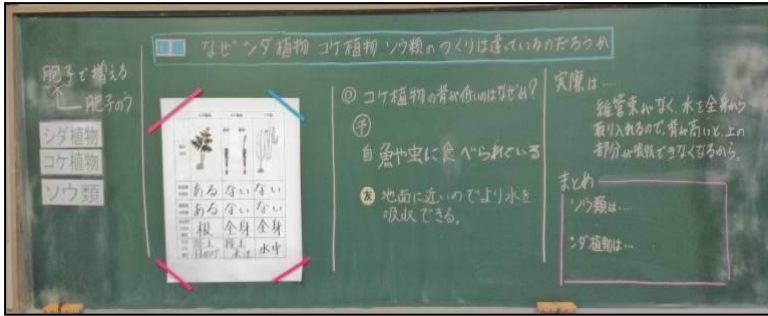 課題 なぜシダ植物 コケ植物 ソウ類のつくりは違っているのだろうか
胞子で増える
胞子のう
シダ植物
コケ植物
ソウ類
ある ない ない
ある ない ない
根 全身 全身
陸上 陸上 水中
◎ コケ植物の背が低いのはなぜか?
予
自 魚や虫に食べられている
友 地面に近いのでより水を
吸収できる。
実際は…
維管束がなく、水を全身から
取り入れるので、背が高いと、上の
部分が吸収できなくなるから。
まとめ
ソウ類は…
シダ植物は…